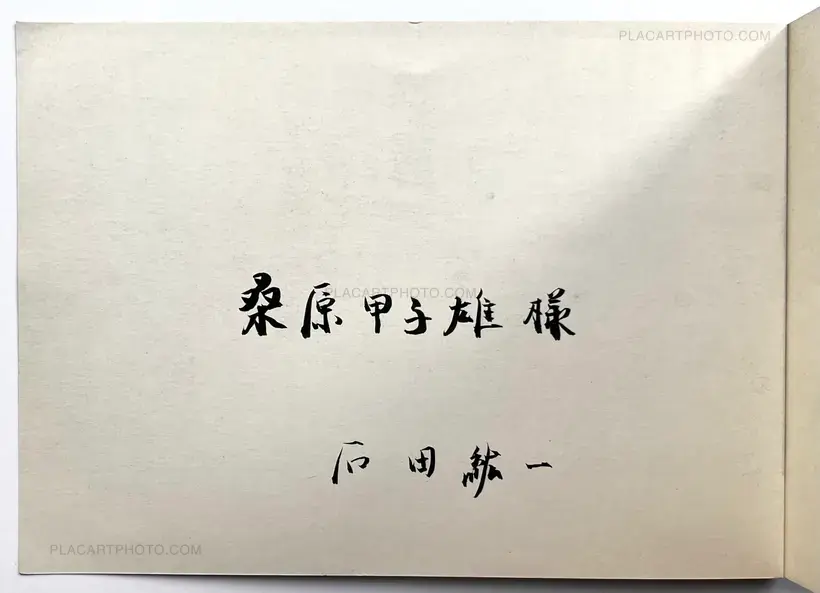 PLACARTPHOTO.COM
桑原甲子雄 様
PLACARTPHOTO.COM
石田紘一
PLACARTPHOTO.COM